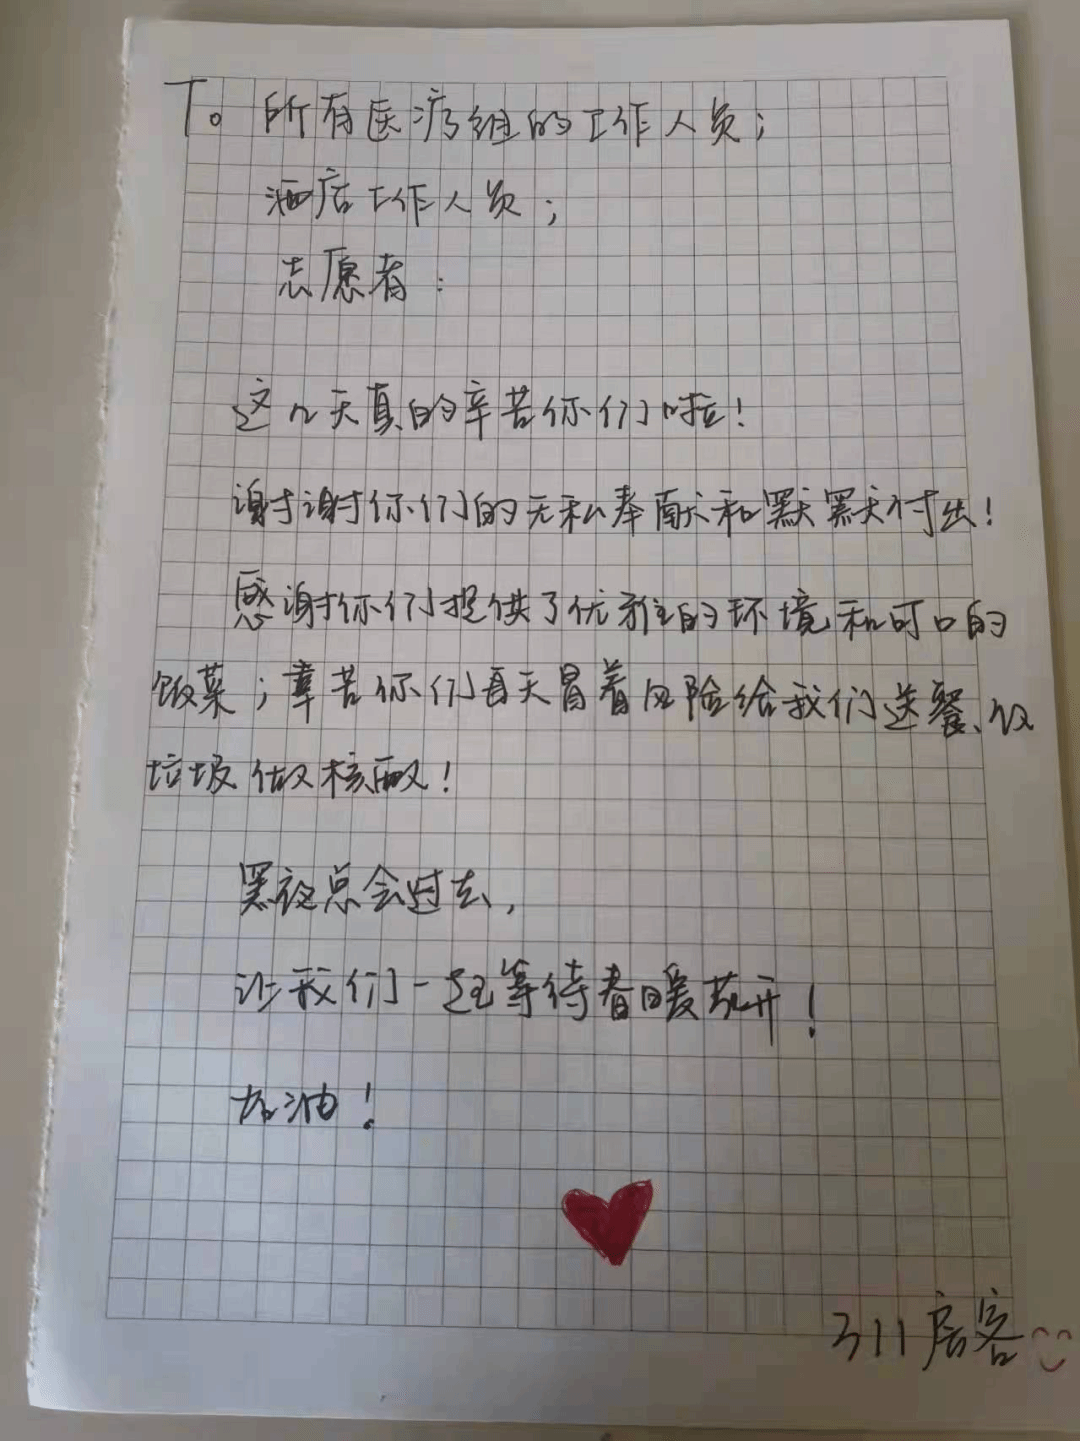 To 所有医疗组的工作人员；
酒店工作人员；
志愿者：
这几天真的辛苦你们啦！
谢谢你们的无私奉献和默默付出！
感谢你们提供了优雅的环境和可口的
饭菜；辛苦你们每天冒着风险给我们送餐、收
垃圾做核酸！
黑夜总会过去，
让我们一起等待春暖花开！
加油！
311房客